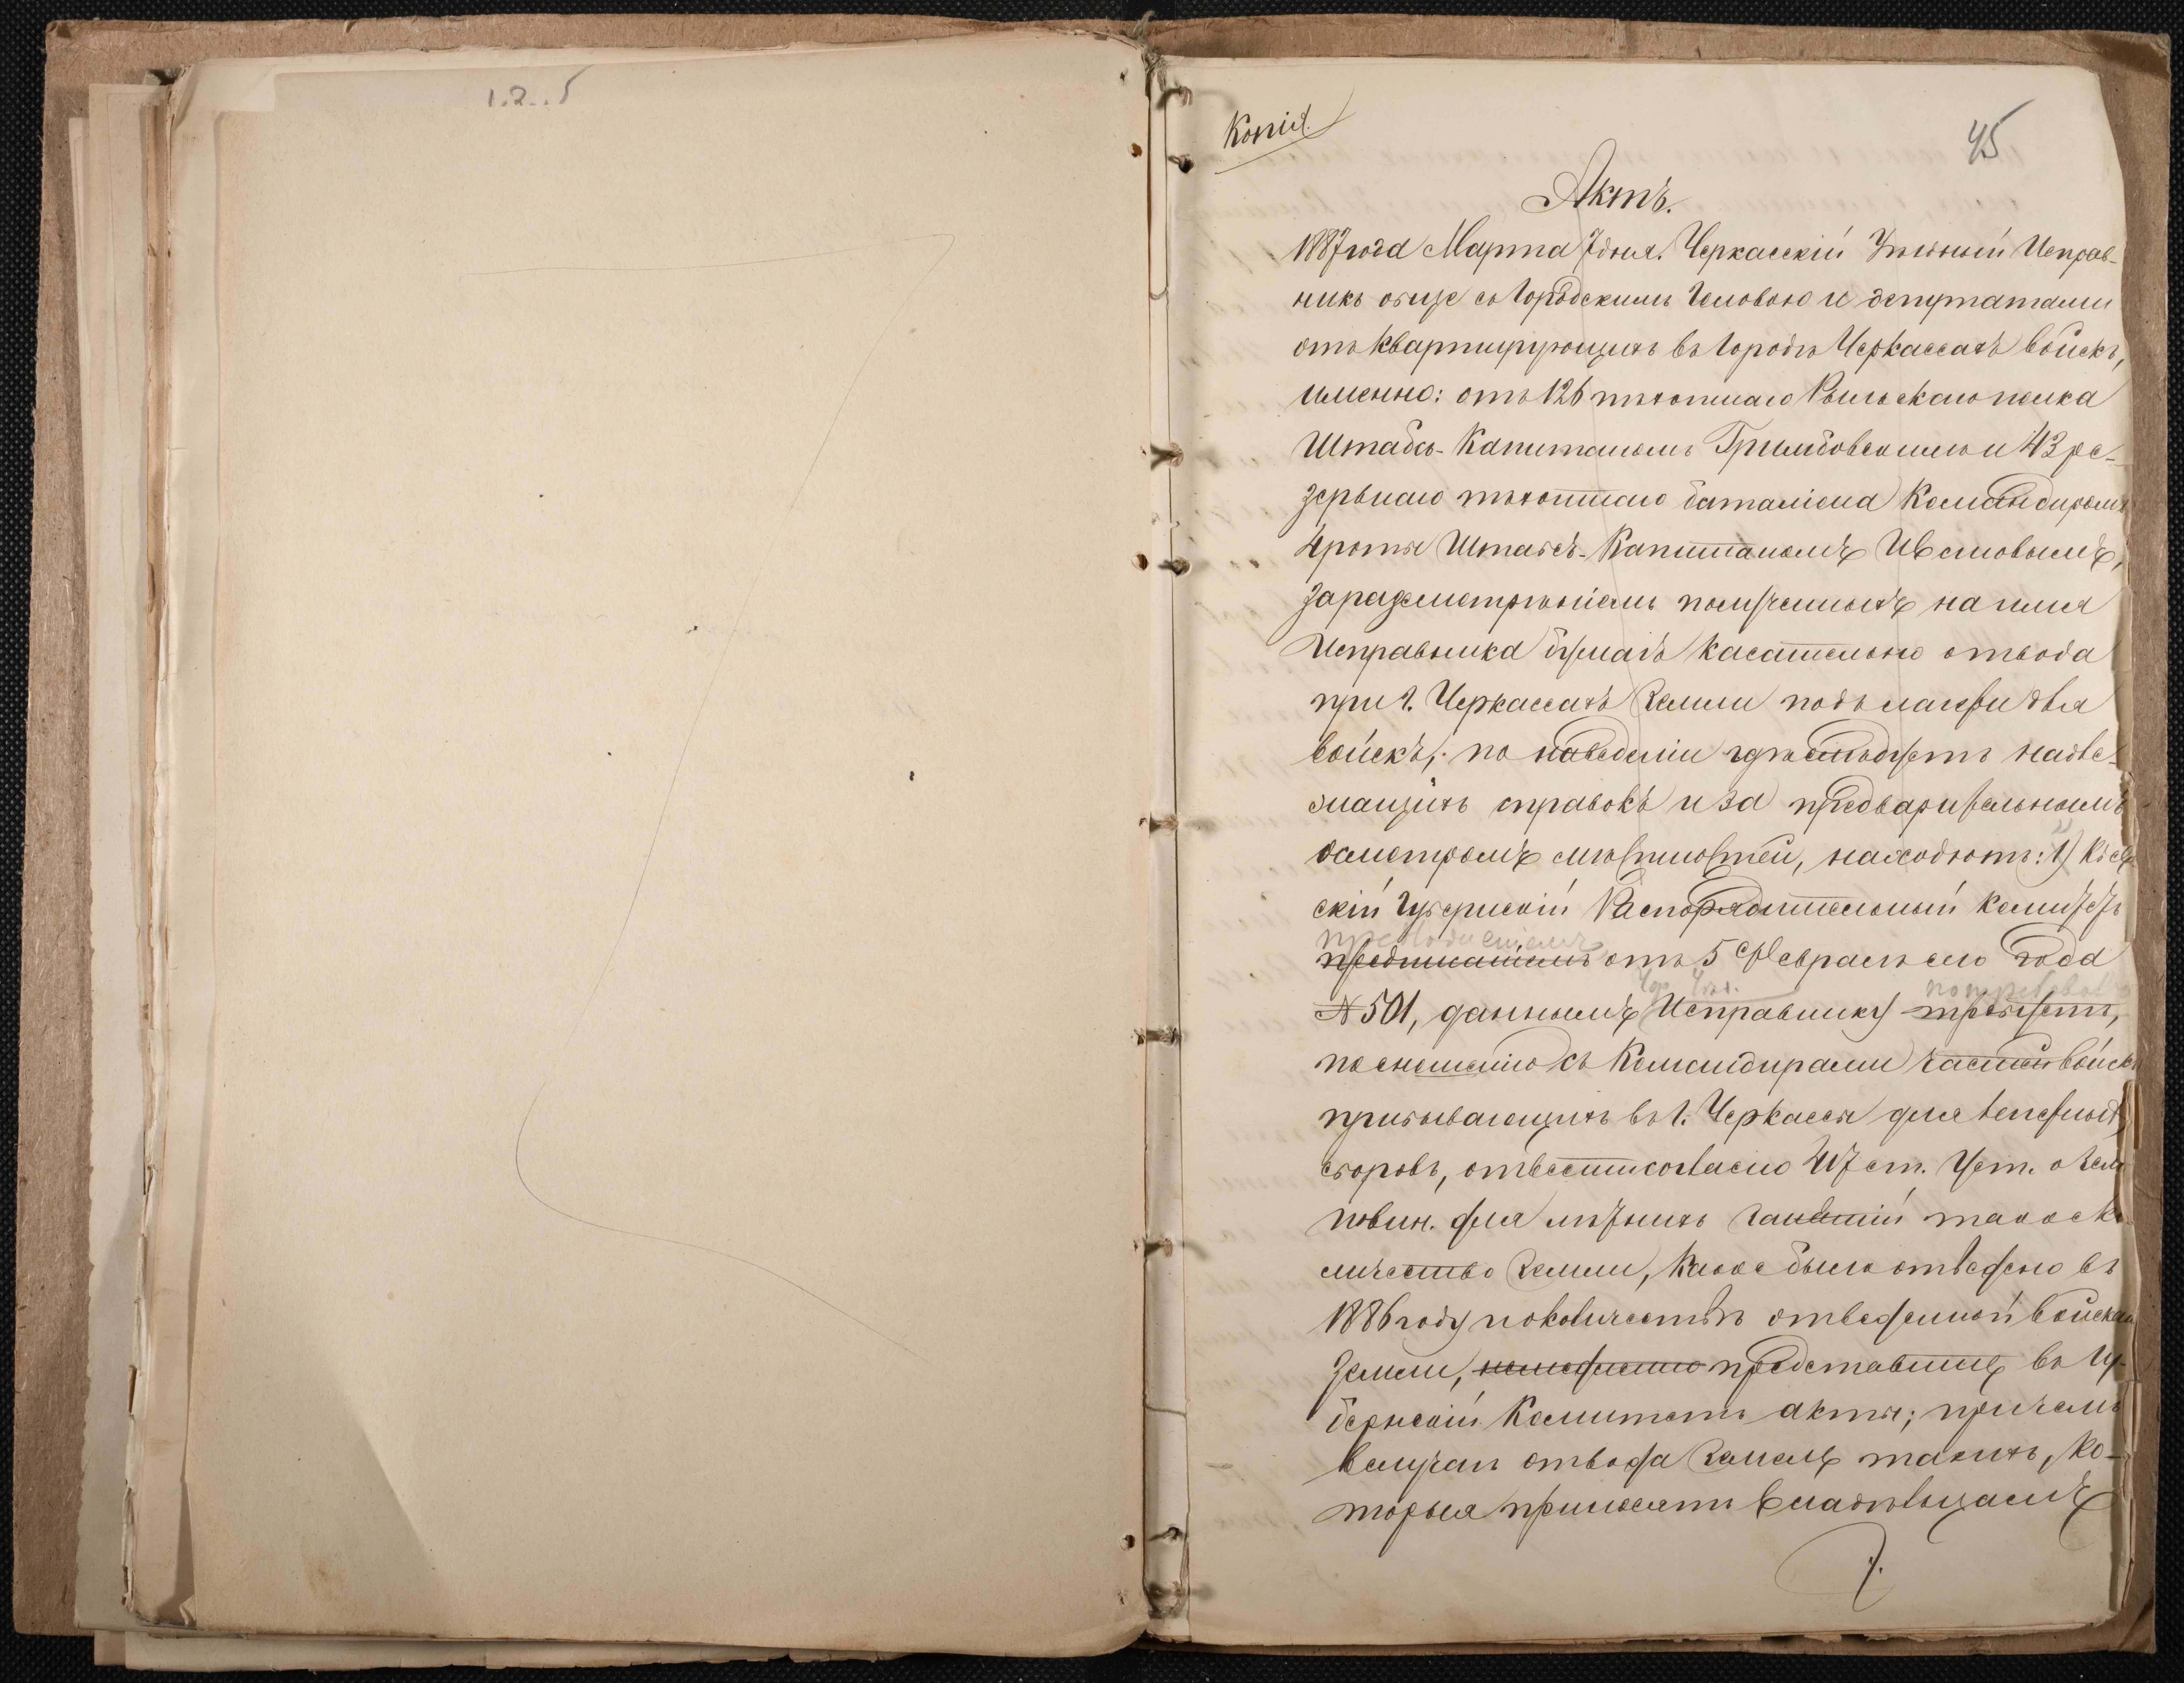 1.2..5
Копія
45
Актъ.
1887 года Марта 7 дня. Черкасскій Уѣздный Исправ-
никъ обще съ Городскимъ Головою и депутатами
отъ квартирующихъ въ городѣ Черкассахъ войскъ,
именно: отъ 126 пѣхотнаго Рыльскаго полка
Штабсъ-Капитаномъ и 43 ре-
зервнаго пѣхотнаго баталіона Командиромъ
4 роты Штабсъ-Капитаномъ
за разсмотрѣніемъ полученныхъ на имя
Исправника бумагъ касательно отвода
при г. Черкассахъ земли подъ лагери для
войскъ, по наведеніи гдѣ слѣдуетъ надле-
жащихъ справокъ и за предварительнымъ
осмотромъ мѣстностей, находятъ: 1) Кіев
скій Губернскій Распорядительный Комитетъ
предложеніемъ
предписаніемъ отъ 5 Февраля сего года
потребовал
№ 501, даннымъ Исправнику требуетъ,
по сношенію съ Командирами частей войскъ
прибывающихъ въ г. Черкассы для лагерныхъ
сборовъ, отвести согласно 417 ст. Уст. о Зем.
повин. для лѣтнихъ занятій такое ко
личество земли, какое было отведено въ
1886 году и о количествѣ отведенной войскам
земли, немедленно представить въ Гу-
бернскій Комитетъ акты; причемъ
въ случаѣ отвода земель такихъ, ко-
торыя приносятъ владѣльцамъ